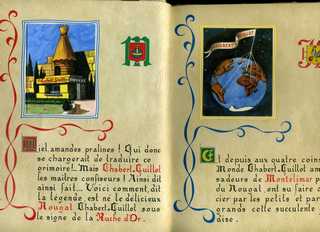 Miel, amandes pralines ! Qui donc
se chargerait de traduire ce
primoire!.. Mais Chabert & Guillot
les maîtres confiseurs ! Ainsi dit
ainsi fait... Voici comment, dit
la légende, est né le délicieux
Nougat Chabert & Guillot sous
le signe de la Ruche d'Or.
CHABERT GUILLOT
Et depuis aux quatre coins
Monde Chabert & Guillot am
sadeurs de Montélimar p
du Nougat, ont su faire a
cier par les petits et par
grands cette succulente
aise.